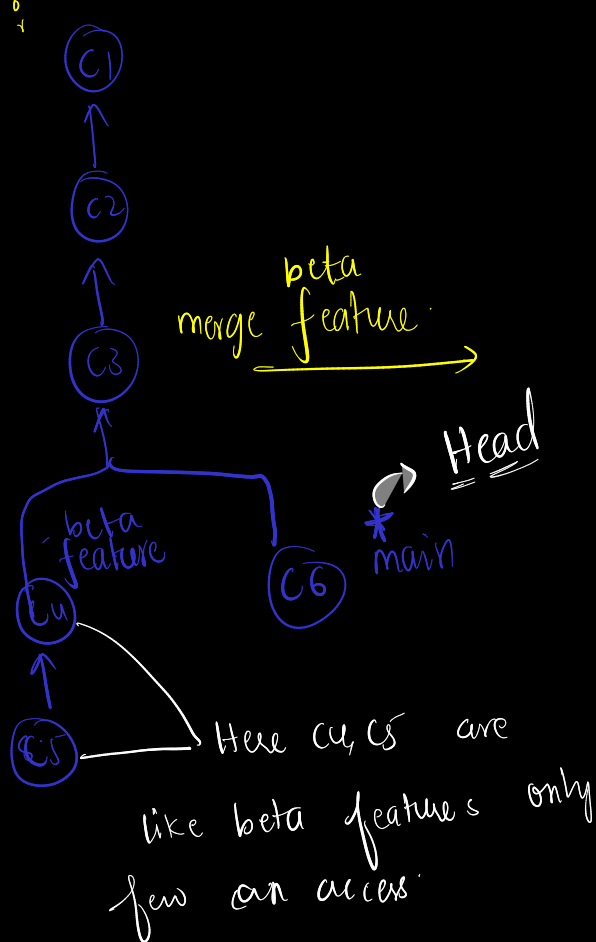 C1
C2
beta
merge feature
C3
Head
beta
feature
* main
C6
C4
C5
Here C4, C5 are
like beta features only
few can access.